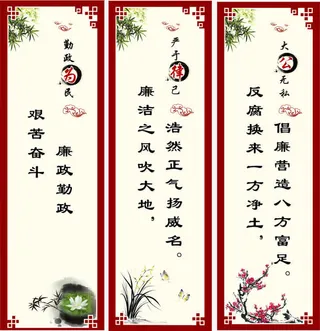 勤政为民
艰苦奋斗
廉政勤政
严于律己
廉洁之风吹大地，
浩然正气扬威名。
大公无私
反腐换来一方净土，
倡廉营造八方富足。